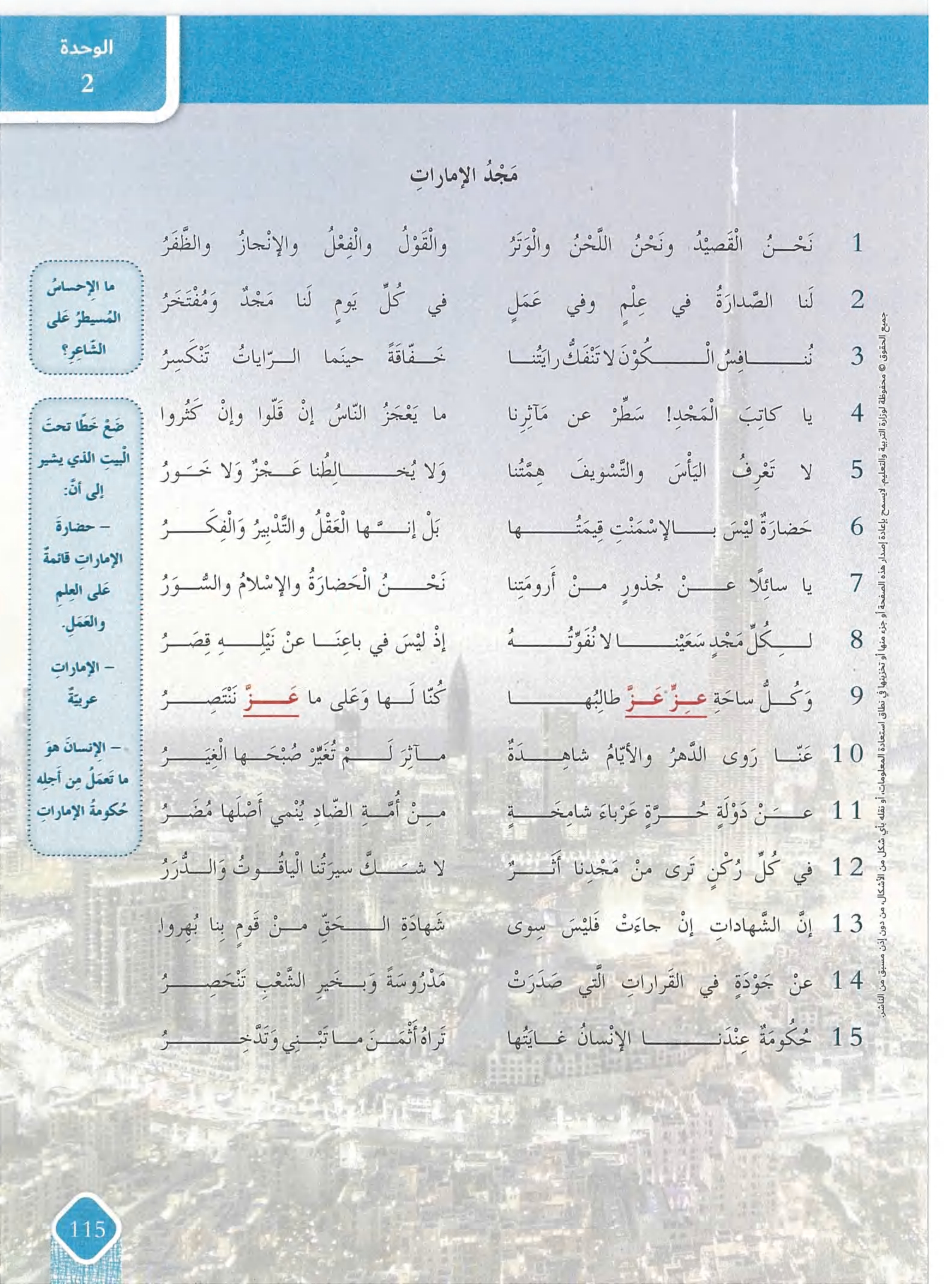 الوحدة
2
مَجْدُ الإماراتِ
1 نَحْـــنُ الْقَصِيْدُ ونَحْنُ اللَّحْنُ والْوَتَرُ والْقَوْلُ والْفِعْلُ والإنْجازُ والظَّفَرُ
2 لَنا الصَّدارَةُ في عِلْمٍ وفي عَمَلٍ في كُلِّ يَومٍ لَنا مَجْدٌ وَمُفْتَخَرُ
3 نُنـــــافِسُ الْـــــكَوْنَ لا تَنْفَكُّ رايَتُنـــا خَـــفّاقَةً حينَما الـــرّاياتُ تَنْكَسِرُ
4 يا كاتِبَ الْمَجْدِ! سَطِّرْ عن مَآثِرِنا ما يَعْجَزُ النّاسُ إنْ قَلّوا وإنْ كَثُروا
5 لا تَعْرِفُ اليَأْسَ والتَّسْويفَ هِمَّتُنا وَلا يُخـــــالِطُنا عَـــجْزٌ وَلا خَـــوَرُ
6 حَضارَةٌ لَيْسَ بـــــالإسْمَنْتِ قِيمَتُـــــها بَلْ إنـــَّها الْعَقْلُ والتَّدْبِيرُ وَالْفِكَـــــرُ
7 يا سائِلًا عـــــنْ جُذورٍ مـــنْ أَرومَتِنا نَحْـــــنُ الْحَضارَةُ والإسْلامُ والسُّـــوَرُ
8 لـــــكُلِّ مَجْدٍ سَعَيْنـــــا لا نُفَوِّتُـــــهُ إذْ لَيْسَ في باعِنَـــا عنْ نَيْلِـــــهِ قِصَـــرُ
9 وَكُـــلُّ ساحَةِ عـــزٍّ عَـــزَّ طالِبُهـــــا كُنّا لَـــها وَعَلى ما عَـــــزَّ نَنْتَصِـــــرُ
10 عَنّـــا رَوى الدَّهرُ والأيّامُ شاهِـــــدَةٌ مـــآثِرَ لَـــــمْ تُغَيِّرْ صُبْحَـــها الْغِيَـــــرُ
11 عـــــنْ دَوْلَةٍ حُـــرَّةٍ عَرْباءَ شامِخَـــــةٍ مِـــنْ أُمَّـــةِ الضّادِ يُنْمي أَصْلَها مُضَـــرُ
12 في كُلِّ رُكْنٍ تَرى منْ مَجْدِنا أَثَـــــرٌ لا شَـــــكَّ سيرَتُنا الْياقُـــوتُ وَالـــدُّرَرُ
13 إنَّ الشَّهاداتِ إنْ جاءَتْ فَلَيْسَ سِوى شَهادَةِ الـــــحَقِّ مـــنْ قَومٍ بِنا بُهِروا.
14 عنْ جَوْدَةٍ في القَراراتِ الَّتي صَدَرَتْ مَدْرُوسَةً وَبـــخَيرِ الشَّعْبِ تَنْحَصِـــــرُ
15 حُكُومَةٌ عِنْدَنـــــــا الإنْسانُ غـــايَتُها تَراهُ أَثْمَـــنَ مـــا تَبْـــنِي وَتَدَّخِـــــرُ
ما الإحساسُ
المُسيطرُ عَلى
الشّاعِرِ؟
ضَعْ خَطًّا تحتَ
الْبيتِ الذي يشير
إلى أنَّ:
– حضارةَ
الإماراتِ قائمةٌ
عَلى العِلمِ
والعَمَلِ.
– الإماراتِ
عربيّةٌ
– الإنسانَ هوَ
ما تَعمَلُ مِن أَجلِه
حُكومةُ الإماراتِ
جميع الحقوق © محفوظة لوزارة التربية والتعليم. لايسمح بإعادة إصدار هذه الصفحة أو جزء منها أو تخزينها في نطاق استعادة المعلومات، أو نقله بأي شكل من الأشكال، من دون إذن مسبق من الناشر.
115